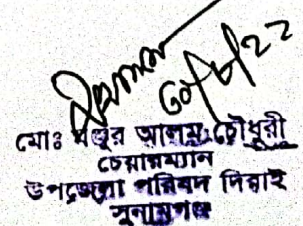 ৩০/৮/২২
মোঃ মঞ্জুর আলম চৌধুরী
চেয়ারম্যান
উপজেলা পরিষদ দিরাই
সুনামগঞ্জ